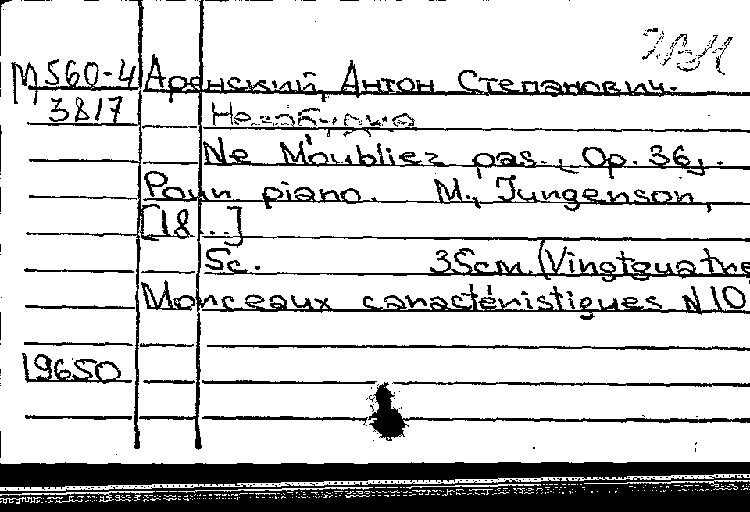 М560-4 Аренский, Антон Степанович.
3817 Незабудка
Ne M'oubliez pas. Op. 36,.
Pour piano. M., Jurgenson,
[18..]
5c. 35cm. (Vingtquatre
Morceaux caractéristiques N 10
19650